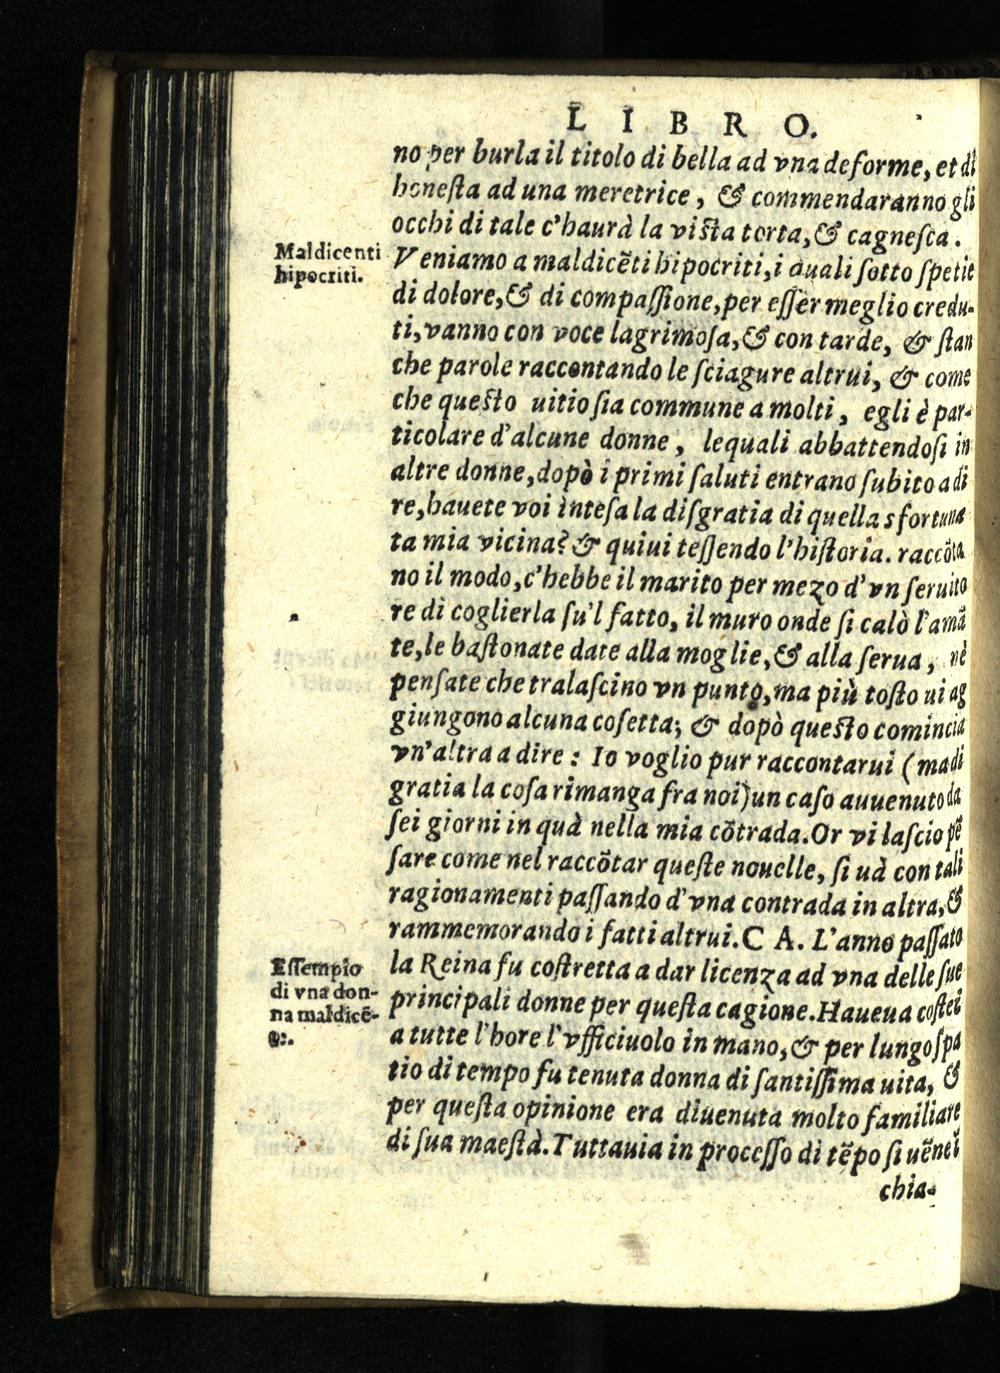 LIBRO.
no per burla il titolo di bella ad vna deforme, et di
honeſta ad una meretrice, & commendaranno gli
occhi di tale c'haurà la viſta torta, & cagneſca.
Maldicenti
hipocriti.
Veniamo a maldicēti hipocriti, i quali ſotto ſpetie
di dolore, & di compaſſione, per eſſer meglio credu-
ti, vanno con voce lagrimoſa, & con tarde, & ſtan
che parole raccontando le ſciagure altrui, & come
che queſto uitio ſia commune a molti, egli è par-
ticolare d'alcune donne, lequali abbattendoſi in
altre donne, dopò i primi ſaluti entrano ſubito a di
re, hauete voi inteſa la diſgratia di quella sfortuna
ta mia vicina? & quiui teſſendo l'hiſtoria. raccōta
no il modo, c'hebbe il marito per mezo d'vn ſeruito
re di coglierla ſu'l fatto, il muro onde ſi calò l'amā
te, le baſtonate date alla moglie, & alla ſerua, nè
penſate che tralaſcino vn punto, ma più toſto ui ag
giungono alcuna coſetta; & dopò queſto comincia
vn'altra a dire: Io voglio pur raccontarui (ma di
gratia la coſa rimanga fra noi) un caſo auuenuto da
ſei giorni in quà nella mia cōtrada. Or vi laſcio pē
ſare come nel raccōtar queſte nouelle, ſi uà con tali
ragionamenti paſſando d'vna contrada in altra, &
rammemorando i fatti altrui. C A. L'anno paſſato
Eſſempio
di vna don-
na maldicē-
te.
la Reina fu coſtretta a dar licenza ad vna delle ſue
principali donne per queſta cagione. Haueua coſtei
a tutte l'hore l'vfficiuolo in mano, & per lungo ſpa
tio di tempo fu tenuta donna di ſantiſſima uita, &
per queſta opinione era diuenuta molto familiare
di ſua maeſtà. Tuttauia in proceſſo di tēpo ſi uēne ī
chia-